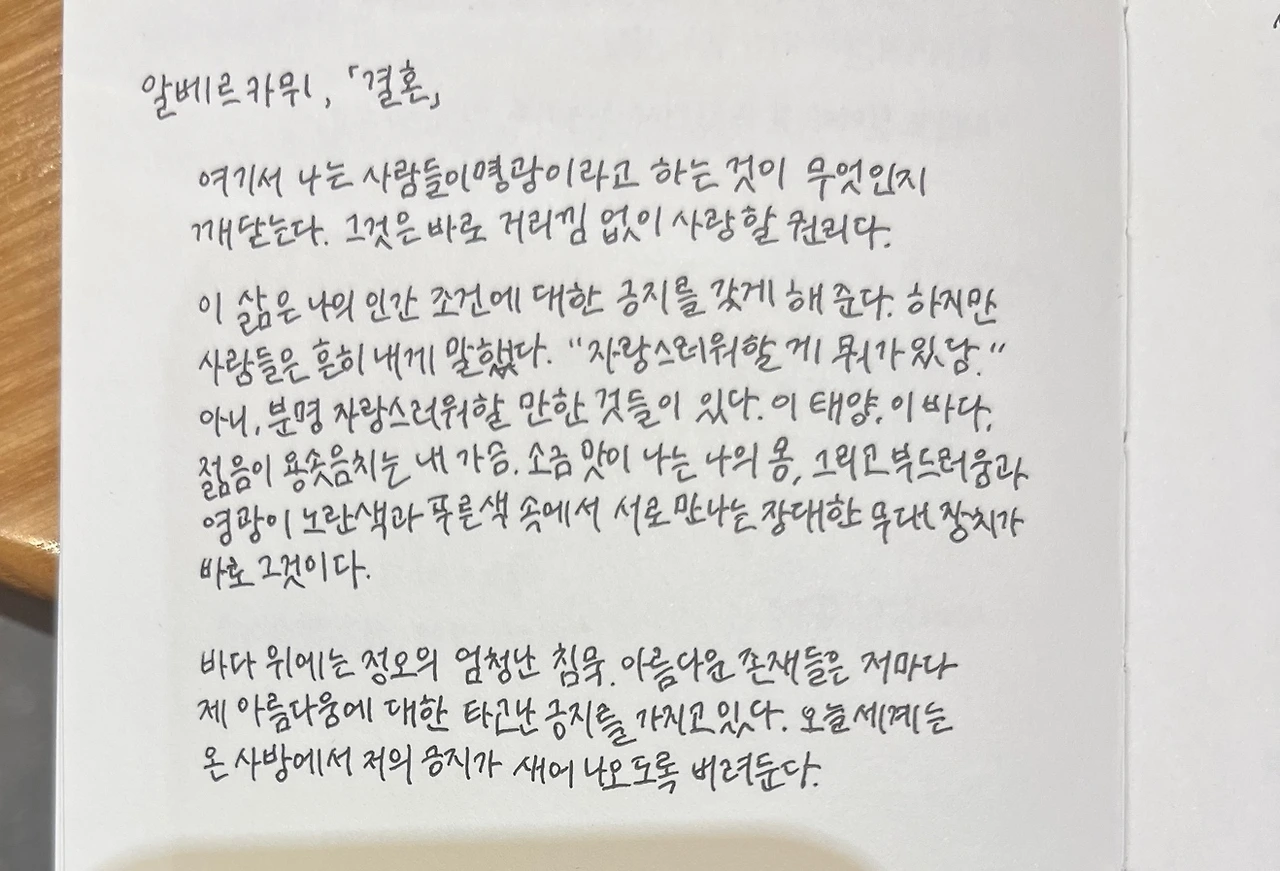 알베르 카뮈, 「결혼」
여기서 나는 사람들이 영광이라고 하는 것이 무엇인지
깨닫는다. 그것은 바로 거리낌 없이 사랑할 권리다.
이 삶은 나의 인간 조건에 대한 긍지를 갖게 해 준다. 하지만
사람들은 흔히 내게 말했다. "자랑스러워할 게 뭐가 있담."
아니, 분명 자랑스러워할 만한 것들이 있다. 이 태양, 이 바다,
젊음이 용솟음치는 내 가슴, 소금 맛이 나는 나의 몸, 그리고 부드러움과
영광이 노란색과 푸른색 속에서 서로 만나는 장대한 무대 장치가
바로 그것이다.
바다 위에는 정오의 엄청난 침묵. 아름다운 존재들은 저마다
제 아름다움에 대한 타고난 긍지를 가지고 있다. 오늘 세계는
온 사방에서 저의 긍지가 새어 나오도록 버려둔다.